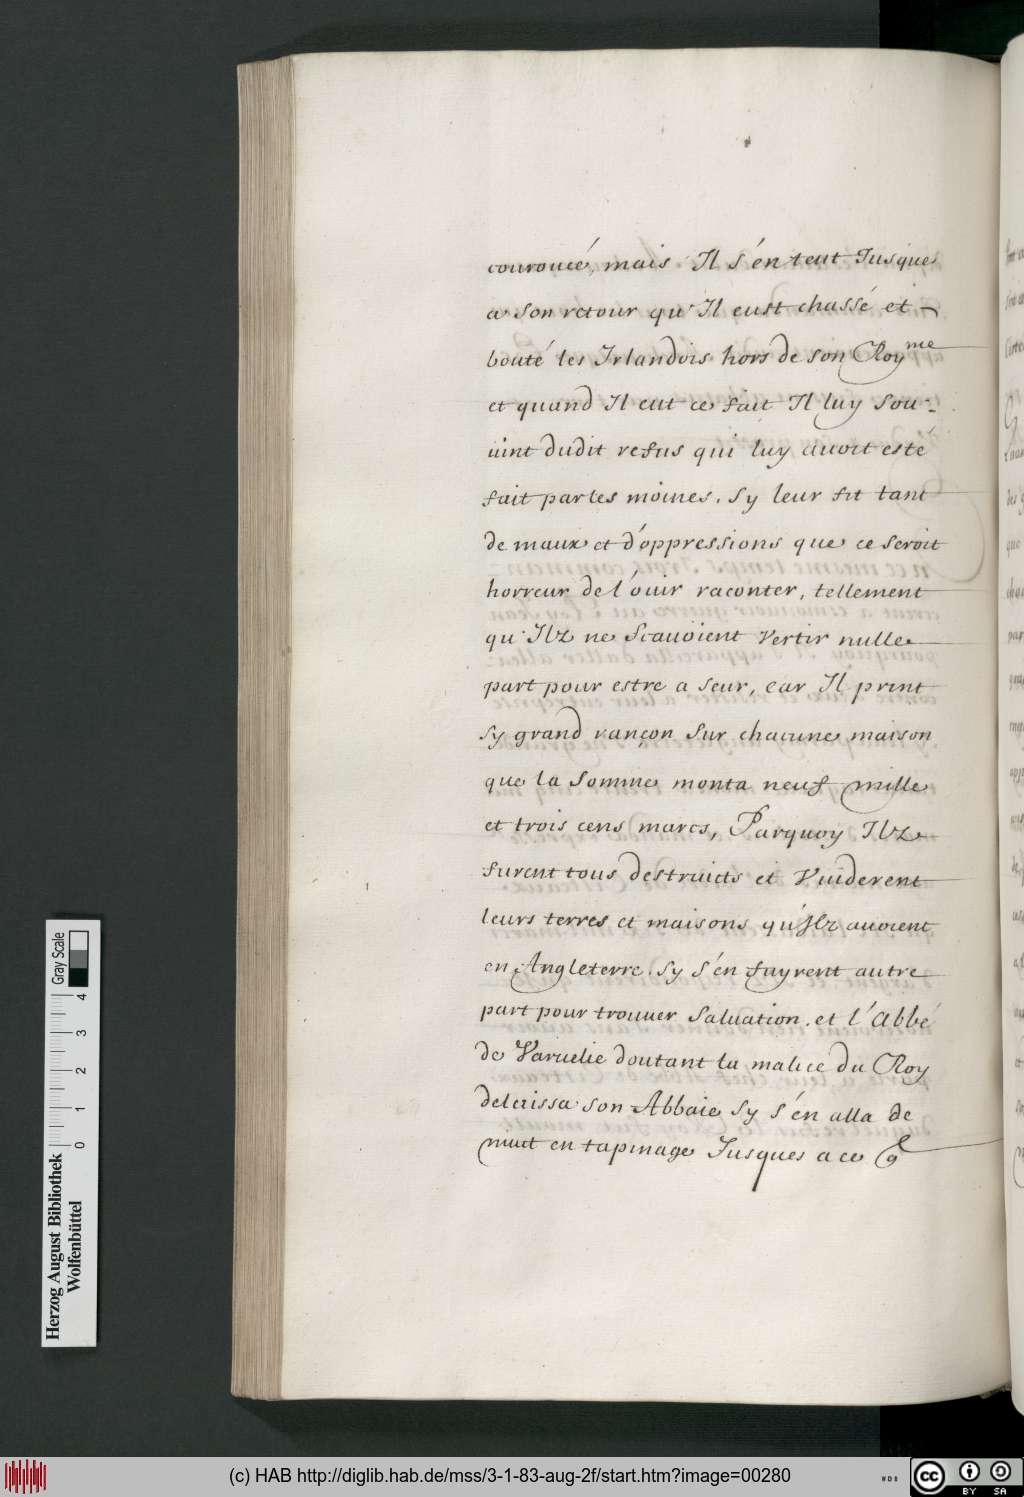 couroucé, mais Il s'én teut Jusques
a son retour qu'Il eust chassé et
bouté les Irlandois hors de son Roy.me
et quand Il eut ce fait Il luy sou-
uint dudit refus qui luy auoit esté
fait par les moines. sy leur fit tant
de maux et d'oppressions que ce seroit
horreur de l'ouir raconter, tellement
qu'Ilz ne scauoient vertir nulle
part pour estre a seur, car Il print
sy grand rançon sur chacune maison
que la somme monta neuf mille
et trois cens marcs, Parquoy Ilz
furent tous destruicts et vuiderent
leurs terres et maisons qu'Ilz auoient
en Angleterre. sy s'én fuyrent autre
part pour trouuer saluation. et l'Abbé
de Varuelie doutant la malice du Roy
delaissa son Abbaie sy s'én alla de
nuict en tapinage Jusques a ce q
Herzog August Bibliothek
Wolfenbüttel
0 1 2 3 4
Gray Scale
(c) HAB http://diglib.hab.de/mss/3-1-83-aug-2f/start.htm?image=00280
WDB
cc BY SA